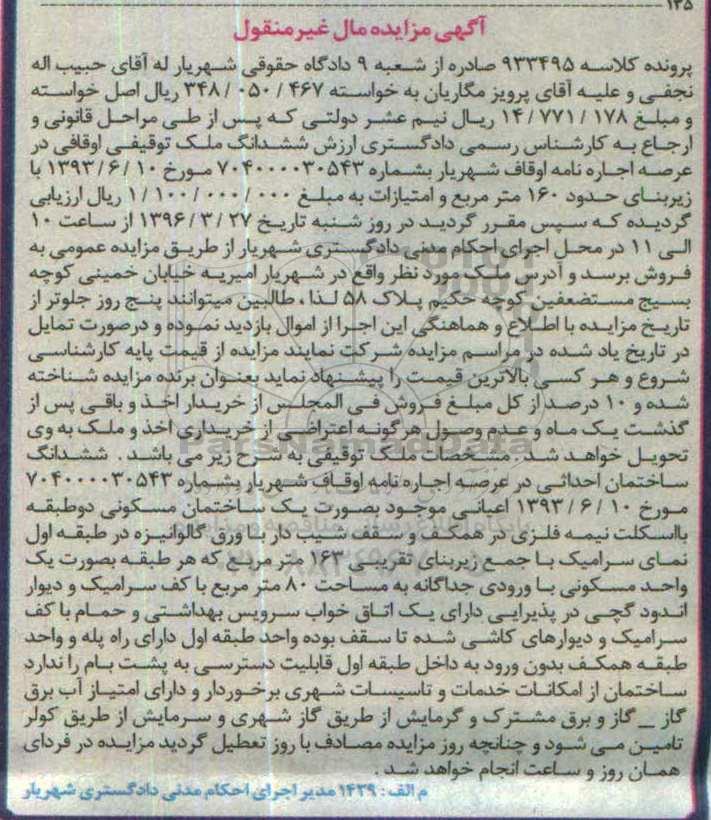 ۱۳۵
آگهی مزایده مال غیرمنقول
پرونده کلاسه ۹۳۳۴۹۵ صادره از شعبه ۹ دادگاه حقوقی شهریار له آقای حبیب اله
نجفی و علیه آقای پرویز مگاریان به خواسته ۴۶۷ / ۰۵۰ / ۳۴۸ ریال اصل خواسته
و مبلغ ۱۷۸ / ۷۷۱ / ۱۴ ریال نیم عشر دولتی که پس از طی مراحل قانونی و
ارجاع به کارشناس رسمی دادگستری ارزش ششدانگ ملک توقیفی اوقافی در
عرصه اجاره نامه اوقاف شهریار بشماره ۷۰۴۰۰۰۰۳۰۵۴۳ مورخ ۱۰ / ۶ / ۱۳۹۳ با
زیربنای حدود ۱۶۰ متر مربع و امتیازات به مبلغ ۰۰۰ / ۰۰۰ / ۱۰۰ / ۱ ریال ارزیابی
گردیده که سپس مقرر گردید در روز شنبه تاریخ ۲۷ / ۳ / ۱۳۹۶ از ساعت ۱۰
الی ۱۱ در محل اجرای احکام مدنی دادگستری شهریار از طریق مزایده عمومی به
فروش برسد و آدرس ملک مورد نظر واقع در شهریار امیریه خیابان خمینی کوچه
بسیج مستضعفین کوچه حکیم پلاک ۵۸ لذا ، طالبین میتوانند پنج روز جلوتر از
تاریخ مزایده با اطلاع و هماهنگی این اجرا از اموال بازدید نموده و درصورت تمایل
در تاریخ یاد شده در مراسم مزایده شرکت نمایند مزایده از قیمت پایه کارشناسی
شروع و هر کسی بالاترین قیمت را پیشنهاد نماید بعنوان برنده مزایده شناخته
شده و ۱۰ درصد از کل مبلغ فروش فی المجلس از خریدار اخذ و باقی پس از
گذشت یک ماه و عدم وصول هرگونه اعتراضی از خریداری اخذ و ملک به وی
تحویل خواهد شد . مشخصات ملک توقیفی به شرح زیر می باشد . ششدانگ
ساختمان احداثی در عرصه اجاره نامه اوقاف شهریار بشماره ۷۰۴۰۰۰۰۳۰۵۴۳
مورخ ۱۰ / ۶ / ۱۳۹۳ اعیانی موجود بصورت یک ساختمان مسکونی دوطبقه
بااسکلت نیمه فلزی در همکف و سقف شیب دار با ورق گالوانیزه در طبقه اول
نمای سرامیک با جمع زیربنای تقریبی ۱۶۳ متر مربع که هر طبقه بصورت یک
واحد مسکونی با ورودی جداگانه به مساحت ۸۰ متر مربع با کف سرامیک و دیوار
اندود گچی در پذیرایی دارای یک اتاق خواب سرویس بهداشتی و حمام با کف
سرامیک و دیوارهای کاشی شده تا سقف بوده واحد طبقه اول دارای راه پله و واحد
طبقه همکف بدون ورود به داخل طبقه اول قابلیت دسترسی به پشت بام را ندارد
ساختمان از امکانات خدمات و تاسیسات شهری برخوردار و دارای امتیاز آب برق
گاز _ گاز و برق مشترک و گرمایش از طریق گاز شهری و سرمایش از طریق کولر
تامین می شود و چنانچه روز مزایده مصادف با روز تعطیل گردید مزایده در فردای
همان روز و ساعت انجام خواهد شد .
م الف : ۱۴۲۹ مدیر اجرای احکام مدنی دادگستری شهریار
ParsNamadData